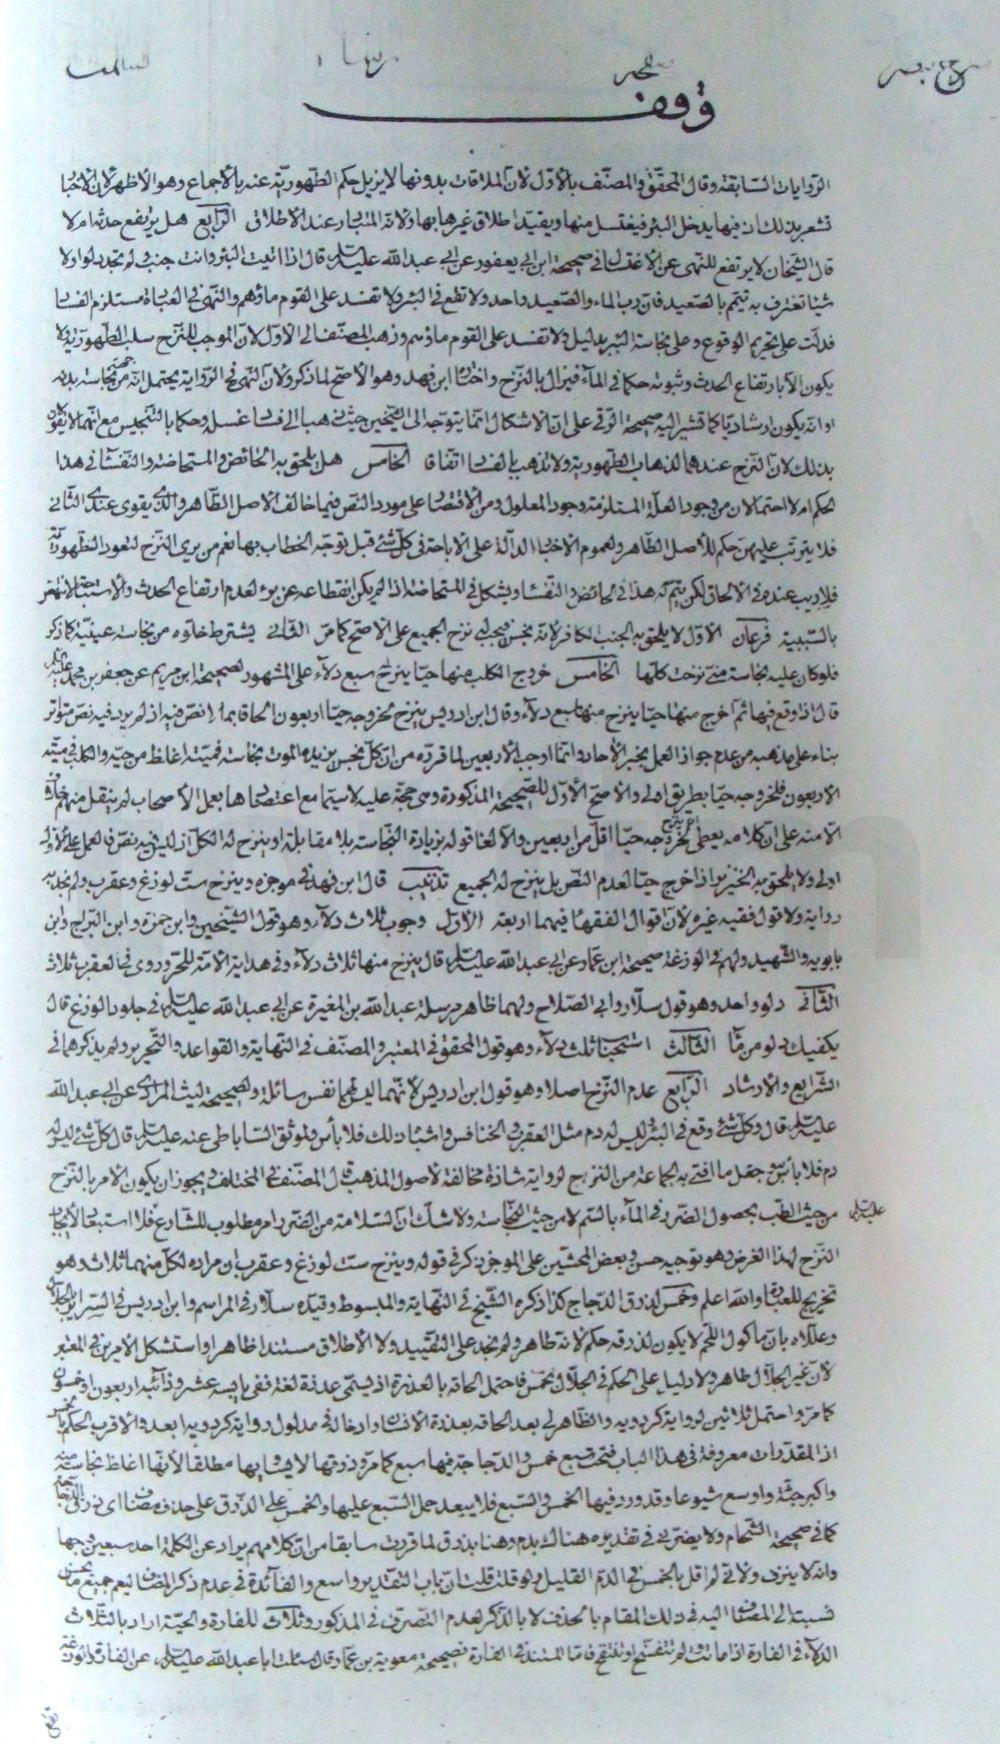 وقف
الروايات السابقة وقال المحقق والمصنف بالأول لأن الملاقات بدونها لا يزيل حكم الطهورية عنه بالأجماع وهو الأظهر لأن الأخبار
تشعر بذلك ان فيها يدخل البئر فيغتسل منها ويقيد اطلاق غيرها بها ولانه المتبادر عند الاطلاق الرابع هل يرتفع حدثه ام لا
قال الشيخان لا يرتفع للنهى عن الاغتسال فى صحيحة ابن ابى يعفور عن ابى عبد الله عليه السلم قال اذا اتيت البئر وانت جنب ولم تجد دلوا ولا
شيئا تغترف به فتيمم بالصعيد فان رب الماء والصعيد واحد ولا تقع فى البئر ولا تفسد على القوم ماؤهم والنهى فى العبادة مستلزم الفساد
فدلت على تحريم الوقوع وعلى نجاسة البئر بدليل ولا تفسد على القوم ماؤهم وذهب المصنف الى الأول لأن الموجب للنزح سلب الطهورية ولا
يكون الا بارتفاع الحدث وثبوته حكما فى المآء فيزال بالنزح واختاره ابن فهد وهو الأصح لما ذكر ولأن النهى فى الرواية يحتمل انه من نجاسة بدنه
او انه يكون ارشاديا كما تشير اليه صحيحة الرقى على ان الاشكال انما يتوجه الى الشيخين حيث ذهبا الى فساد غسله وحكما بالتنجيس مع انهما لا يقولان
بذلك لأن النزح عندهما لذهاب الطهورية ولا تذهب بالفساد اتفاقا الخامس هل يلحق به الحائض والمستحاضة والنفسآء فى هذا
الحكم ام لا احتمالان من وجود العلة المستلزمة وجود المعلول ومن الاقتصار على مورد النص فيما خالف الاصل الظاهر والذى يقوى عندى الثانى
فلا يترتب عليهن حكم للأصل الظاهر ولعموم الاخبار الدالة على الاباحة فى كل شئ قبل توجه الخطاب بها نعم من يرى النزح لتعود الطهورية
فلا ريب عنده فى الالحاق لكن يتم له هذا فى الحائض والنفساء ويشكل فى المستحاضة اذا لم يكن انقطاعه عن برء لعدم ارتفاع الحدث والاستباحة لا تنهض
بالسببية فرعان الاول لا يلحق به الجنب الكافر لانه نجس فيجب نزح الجميع على الاصح كما مر الثانى يشترط خلوه من نجاسة عينية كما ذكر
فلو كان عليه نجاسة منى نزحت كلها الخامس خروج الكلب منها حيا ينزح سبع دلآء على المشهور لصحيحة ابن مريم عن جعفر بن محمد عليه السلم
قال اذا وقع فيها ثم اخرج منها حيا ينزح منها سبع دلآء وقال ابن ادريس ينزح لخروجه حيا اربعون الحاقا بما لا نص فيه اذ لم يرد فيه نص متواتر
بناء على مذهبه من عدم جواز العمل بخبر الأحاد وانما اوجب الأربعين لما قرره من ان كل نجس يزيده الموت نجاسة فميته اغلظ من حيه والكلب فى ميته
الاربعون فلخروجه حيا بطريق اولى والاصح الأول للصحيحة المذكورة وهى حجة عليه لا سيما مع اعتضادها بعمل الأصحاب لم ينقل منهم خلاف
الا منه على ان كلامه يعطى لخروجه حيا اقل من اربعين والا لغا قوله بزيادة النجاسة بلا مقابلة او ينزح له الكل اذ ليس فيه نص فالعمل على الأول
اولى ولا يلحق به الخنزير اذا خرج حيا لعدم النص بل ينزح له الجميع تذنيب قال ابن فهد فى موجزه وينزح ست لوزغ وعقرب ولم نجد به
رواية ولا قول فقيه غيره لأن اقوال الفقهآء فيهما اربعة الأول وجوب ثلاث دلآء وهو قول الشيخين وابن حمزة وابن البراج وابن
بابويه والشهيد ولهم فى الوزغة صحيحة ابن عمار عن ابى عبد الله عليه السلم قال ينزح منها ثلاث دلآء وفى هداية الأمة للحر وروى فى العقرب ثلاث
الثانى دلو واحد وهو قول سلار وابى الصلاح ولهما ظاهر مرسلة عبد الله بن المغيرة عن ابى عبد الله عليه السلم فى جلود الوزغ قال
يكفيك دلو من مآء الثالث استحباب ثلث دلآء وهو قول المحقق فى المعتبر والمصنف فى النهاية والقواعد والتحرير ولم يذكرهما فى
الشرايع والأرشاد الرابع عدم النزح اصلا وهو قول ابن ادريس لأنهما ليس لهما نفس سائلة ولصحيحة ليث المرادى عن ابى عبد الله
عليه السلم قال وكل شئ وقع فى البئر ليس له دم مثل العقرب والخنافس واشباه ذلك فلا بأس ولموثق الساباطى عنه عليه السلم قال كل شئ ليس له
دم فلا بأس به وجعل ما افتى به الجماعة من النزح لرواية شاذة مخالفة لأصول المذهب قال المصنف فى المختلف ويجوز ان يكون الأمر بالنزح
من حيث الطب بحصول الضرر فى المآء بالسم لا من حيث النجاسة ولا شك ان السلامة من الضرر امر مطلوب للشارع فلا استبعاد لأيجاب
عليه السلم
النزح لهذا الغرض وهو توجيه حسن وبعض المحشين على الموجز ذكر فى قوله وينزح ست لوزغ وعقرب ان مراده لكل منهما ثلاث وهو
تخريج للعبارة والله اعلم وخمس لذرق الدجاج كذا ذكره الشيخ فى النهاية والمبسوط وقيده سلار فى المراسم وابن ادريس فى السرائر بالجلال
وعللاه بان مأكول اللحم لا يكون لذرقه حكم لانه طاهر ولم نجد على التقييد ولا الأطلاق مستندا ظاهرا واستشكل الأمرين فى المعتبر
لأن غير الجلال طاهر ولا دليل على الحكم فى الجلال بخمس فاحتمل الحاقه بالعذرة اذ يسمى عذرة لغة ففى يابسه عشر وذائبه اربعون او خمسون
كما مر واحتمل ثلاثين لرواية كردويه والظاهر لى بعد الحاقه بعذرة الأنسان وادخاله فى مدلول رواية كردويه ابعد والاقرب الحكم بالخمس
اذ المقدرات معروفة فى هذا الباب فتحت سبع خمس والدجاجة فيها سبع كما مر وذرقها لا يساويها مطلقا لأنها اغلظ نجاسة منه
واكبر جثة واوسع شيوعا وقد ورد فيها الخمس والسبع فلا يبعد حمل السبع عليها والخمس على الذرق على حذف مضاف اى ذرق الدجاجة
كما فى صحيحة الشحام ولا يضر بى فى تقديره هناك بدم وهنا بذرق لما قررت سابقا من ان كلامهم يراد عن الكلمة احد سبعين وجها
وانه لا ينزف ولانى لم اقل بالخمس فى الدم القليل ولو قلت قلت ان باب التقدير واسع والفآئدة فى عدم ذكر المضاف ليعم جميع ما يحسن
نسبته الى المضاف اليه فى ذلك المقام بالحذف لا بالذكر لعدم التصرف فى المذكور وثلاث للفارة والحية اراد بالثلاث
الدلآء فى الفارة اذا ماتت ولم تتفسخ او تنتفخ فاما المستند فى الفارة فصحيحة معوية بن عمار قال سئلت ابا عبد الله عليه السلم عن الفارة والوزغة
تقع